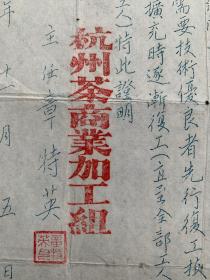 需要技術優良者先行復工按
擴充時逐漸復工(直至全部工人
工人)特此證明
杭州茶商業加工組
主任章特英
年十一月五日